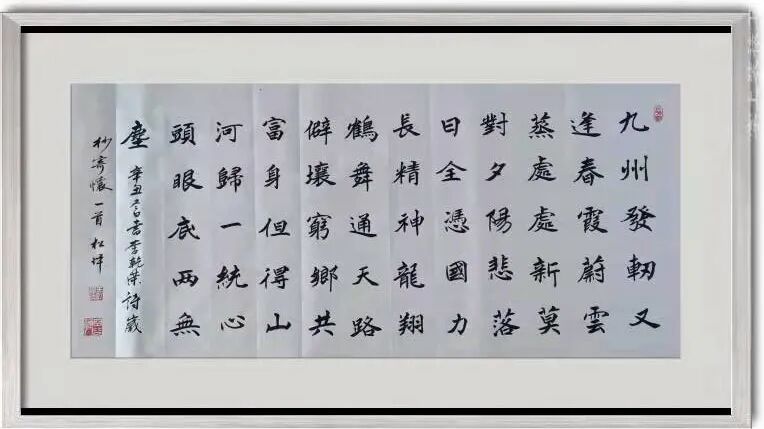 九州發軔又
逢春霞蔚雲
蒸處處新莫
對夕陽悲落
日全憑國力
長精神龍翔
鶴舞通天路
僻壤窮鄉共
富身但得山
河歸一統心
頭眼底兩無
塵 辛丑冬日書李乾榮詩歲
杪寄懷一首 松坪